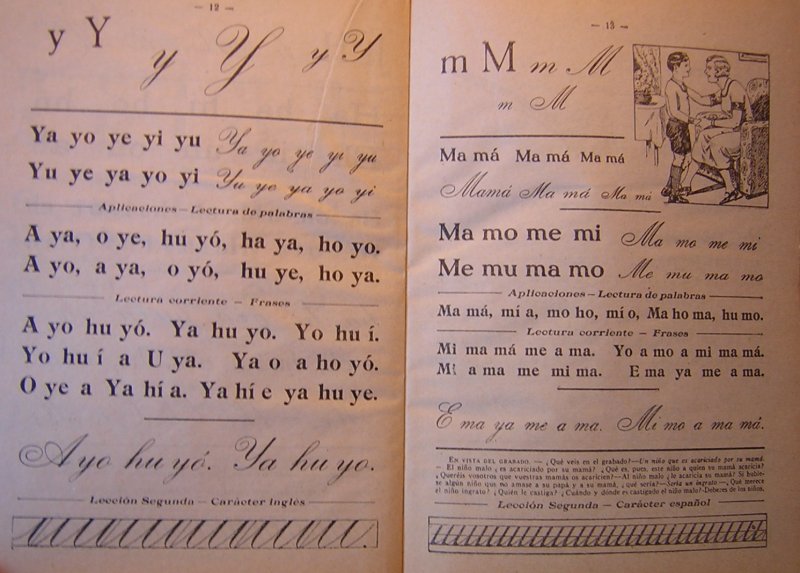 — 12 —
y Y y Y y Y
Ya yo ye yi yu Ya yo ye yi yu
Yu ye ya yo yi Yu ye ya yo yi
Aplicaciones — Lectura de palabras
A ya, o ye, hu yó, ha ya, ho yo.
A yo, a ya, o yó, hu ye, ho ya.
Lectura corriente — Frases
A yo hu yó. Ya hu yo. Yo hu í.
Yo hu í a U ya. Ya o a ho yó.
O ye a Ya hí a. Ya hí e ya hu ye.
A yo hu yó. Ya hu yo.
Lección Segunda — Carácter inglés
— 13 —
m M m M
m M
Ma má Ma má Ma má
Mamá Ma má Ma má
Ma mo me mi Ma mo me mi
Me mu ma mo Me mu ma mo
Aplicaciones — Lectura de palabras
Ma má, mí a, mo ho, mí o, Ma ho ma, hu mo.
Lectura corriente — Frases
Mi ma má me a ma. Yo a mo a mi ma má.
Mi a ma me mi ma. E ma ya me a ma.
E ma ya me a ma. Mi mo a ma má.
EN VISTA DEL GRABADO. — ¿Qué veis en el grabado?—Un niño que es acariciado por su mamá.
— El niño malo ¿es acariciado por su mamá? ¿Qué es, pues, este niño a quien su mamá acaricia?
¿Queréis vosotros que vuestras mamás os acaricien?—Al niño malo ¿le acaricia su mamá? Si hubie-
se algún niño que no amase a su papá y a su mamá, ¿qué sería?—Sería un ingrato—¿Qué merece
el niño ingrato? ¿Quién le castiga? ¿Cuándo y dónde es castigado el niño malo?-Deberes de los niños.
Lección Segunda — Carácter español